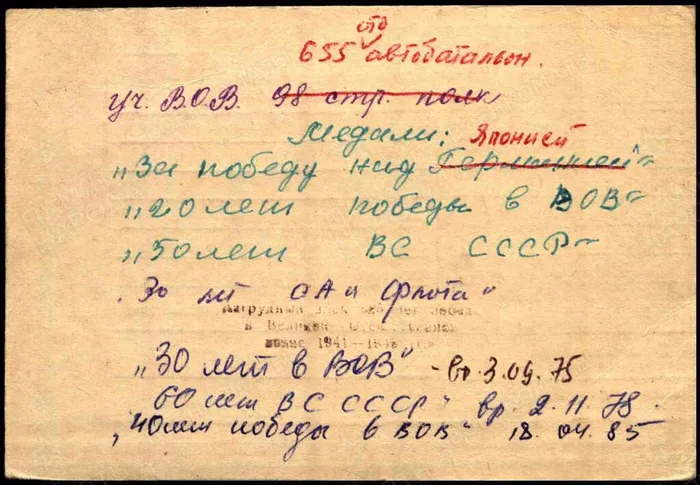 отд
655 автобатальон.
уч. В.О.В. 98 стр. полк
Медали: Японией
„За победу над Германией"
„20 лет победы в ВОВ"
„50 лет ВС СССР"
„30 лет СА и Флота"
Нагрудный знак
в Великой Отечественной
войне 1941—1945 гг.
„30 лет в ВОВ" - вр. 3.09.75
60 лет ВС СССР" вр. 2.11.78.
„40 лет победы в ВОВ" 18.04.85